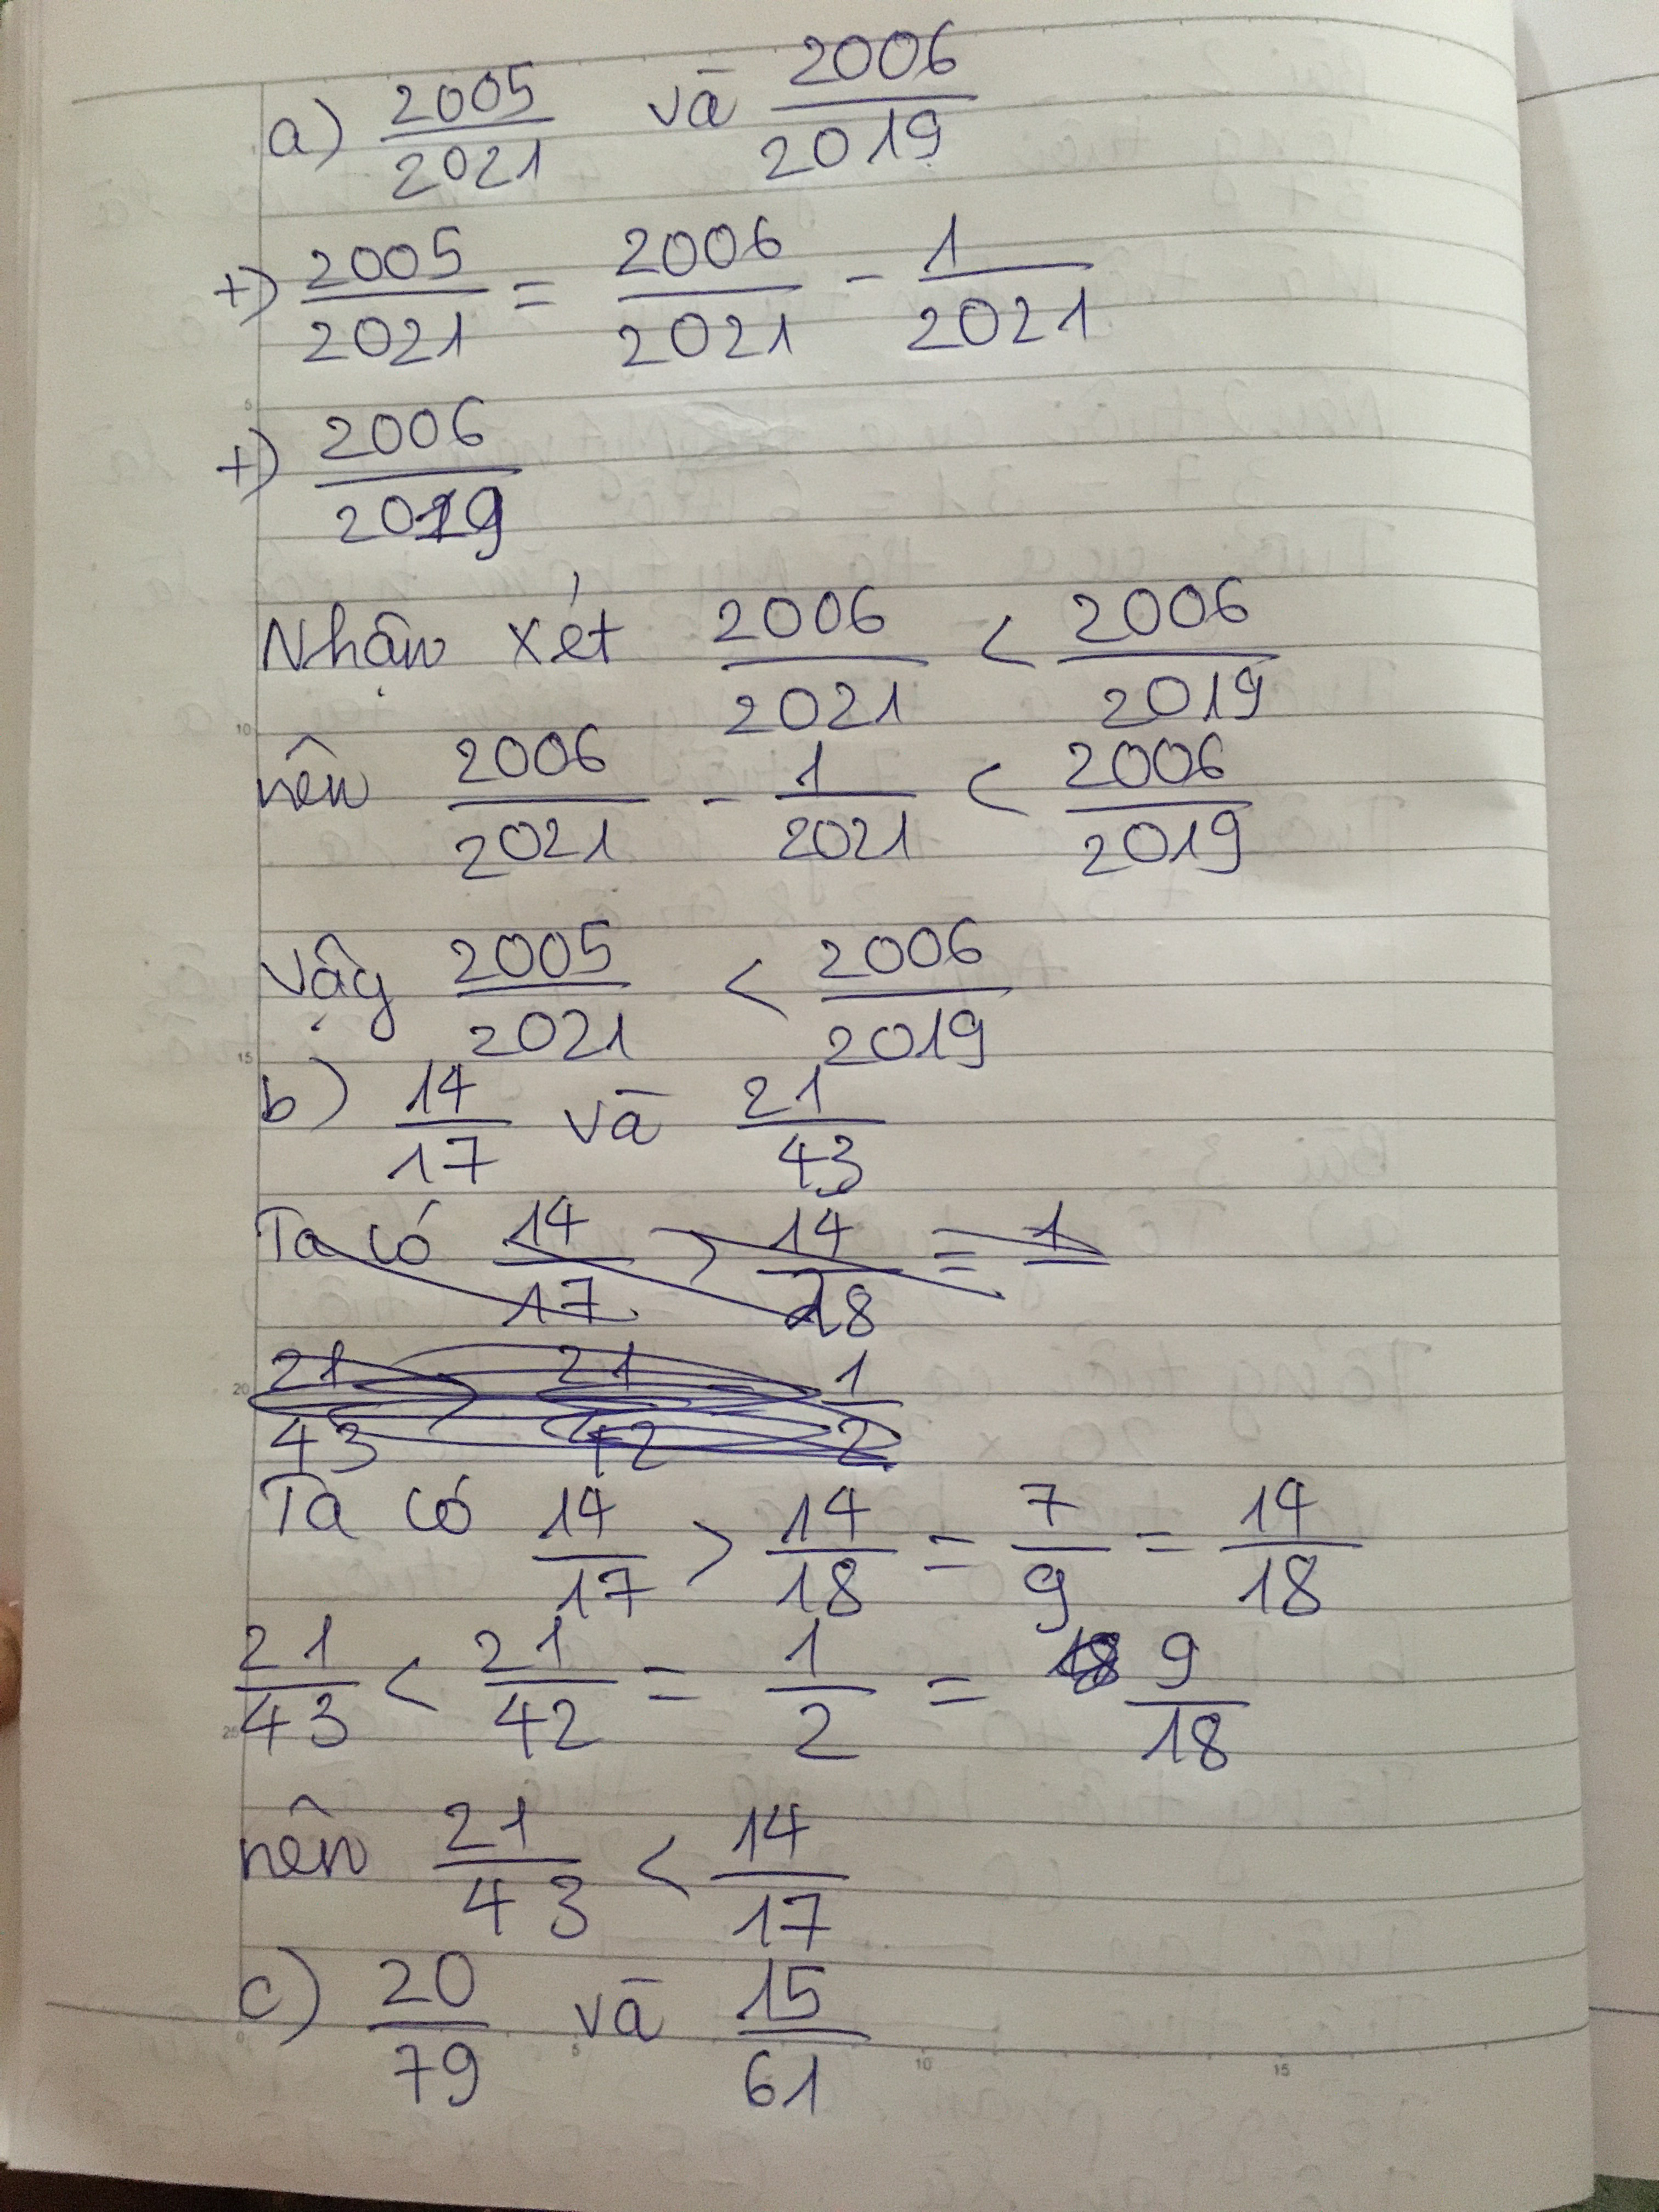 a) 2005/2021 và 2006/2019
+) 2005/2021 = 2006/2021 - 1/2021
+) 2006/2019
Nhận xét 2006/2021 < 2006/2019
nên 2006/2021 - 1/2021 < 2006/2019
Vậy 2005/2021 < 2006/2019
b) 14/17 và 21/43
Ta có 14/17 > 14/18 = 1
21/43 21/42 1/2
Ta có 14/17 > 14/18 = 7/9 = 14/18
21/43 < 21/42 = 1/2 = 9/18
nên 21/43 < 14/17
c) 20/79 và 15/61